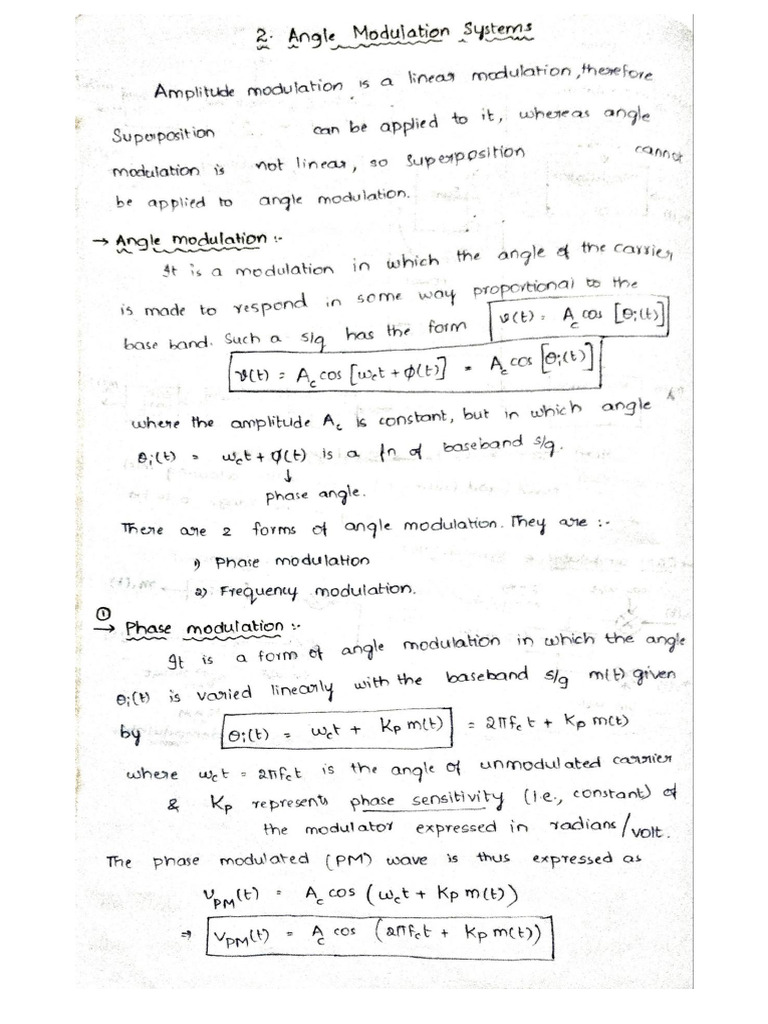 2. Angle Modulation Systems
Amplitude modulation is a linear modulation, therefore
Superposition can be applied to it, whereas angle
modulation is not linear, so superposition cannot
be applied to angle modulation.
→ Angle modulation :-
It is a modulation in which the angle of the carrier
is made to respond in some way proportional to the
base band. Such a s/g has the form v(t) = A_c cos [θ_i(t)]
v(t) = A_c cos [ω_c t + φ(t)] = A_c cos [θ_i(t)]
where the amplitude A_c is constant, but in which angle
θ_i(t) = ω_c t + φ(t) is a fn of baseband s/g.
↓
phase angle.
There are 2 forms of angle modulation. They are :-
1) Phase modulation
2) Frequency modulation.
①
→ Phase modulation :-
It is a form of angle modulation in which the angle
θ_i(t) is varied linearly with the baseband s/g m(t) given
by θ_i(t) = ω_c t + K_p m(t) = 2πf_c t + K_p m(t)
where ω_c t = 2πf_c t is the angle of unmodulated carrier
& K_p represents phase sensitivity (i.e., constant) of
the modulator expressed in radians/volt.
The phase modulated (PM) wave is thus expressed as
V_PM(t) = A_c cos (ω_c t + K_p m(t))
⇒ V_PM(t) = A_c cos (2πf_c t + K_p m(t))